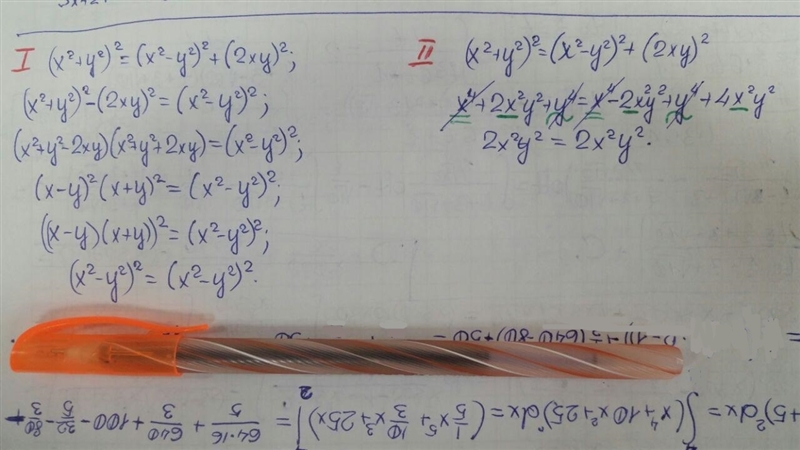 I (x²+y²)²=(x²-y²)²+(2xy)²;
(x²+y²)²-(2xy)²=(x²-y²)²;
(x²+y²-2xy)(x²+y²+2xy)=(x²-y²)²;
(x-y)²(x+y)²=(x²-y²)²;
((x-y)(x+y))²=(x²-y²)²;
(x²-y²)²=(x²-y²)².
II (x²+y²)²=(x²-y²)²+(2xy)²
x⁴+2x²y²+y⁴=x⁴-2x²y²+y⁴+4x²y²
2x²y²=2x²y².
+5)²dx=∫(x⁴+10x²+25)dx=(1/5x⁵+10/3x³+25x)|=
64·16/5+640/3+100-32/5-80/3-